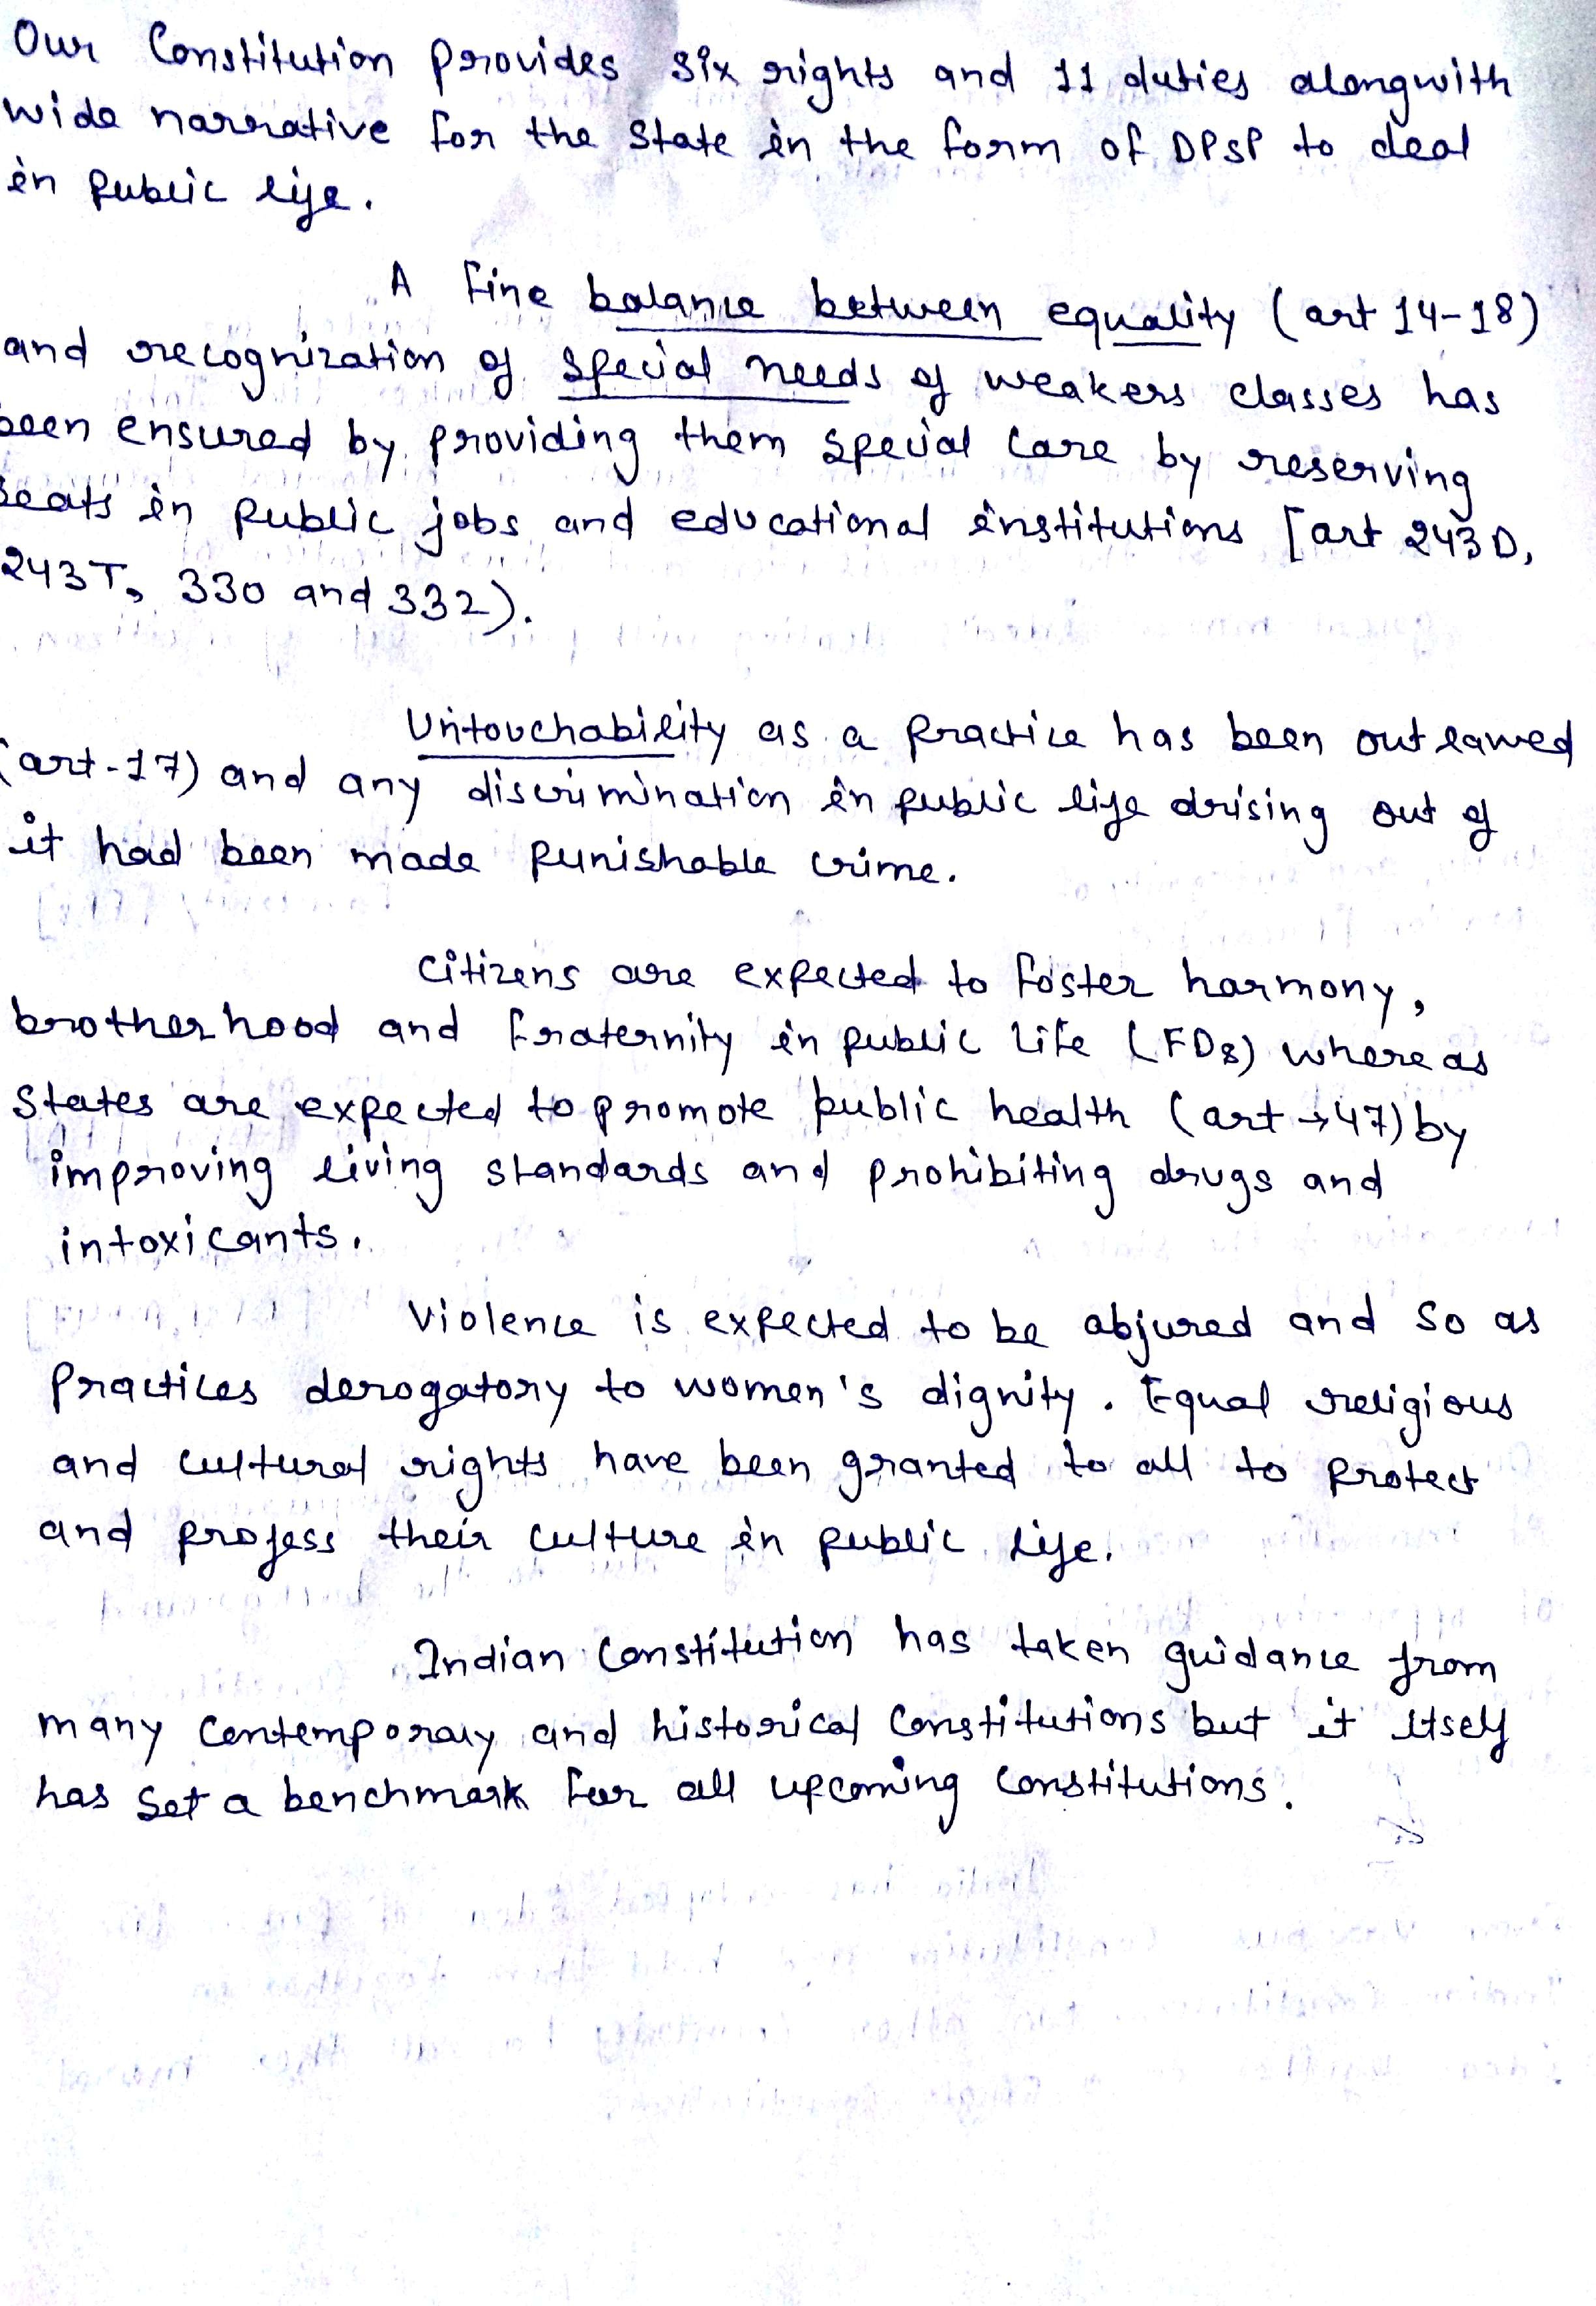 Our Constitution provides six rights and 11 duties alongwith
wide narrative for the State in the form of DPSP to deal
in public life.
A fine balance between equality (art 14-18)
and recognization of special needs of weakers classes has
been ensured by providing them special care by reserving
seats in public jobs and educational institutions [art 243D,
243T, 330 and 332).
Untouchability as a practice has been outlawed
(art-17) and any discrimination in public life arising out of
it had been made punishable crime.
Citizens are expected to foster harmony,
brotherhood and fraternity in public life (FDs) whereas
States are expected to promote public health (art → 47) by
improving living standards and prohibiting drugs and
intoxicants.
Violence is expected to be abjured and so as
practices derogatory to women's dignity. Equal religious
and cultural rights have been granted to all to protect
and profess their culture in public life.
Indian Constitution has taken guidance from
many contemporary and historical Constitutions but it itself
has set a benchmark for all upcoming constitutions.